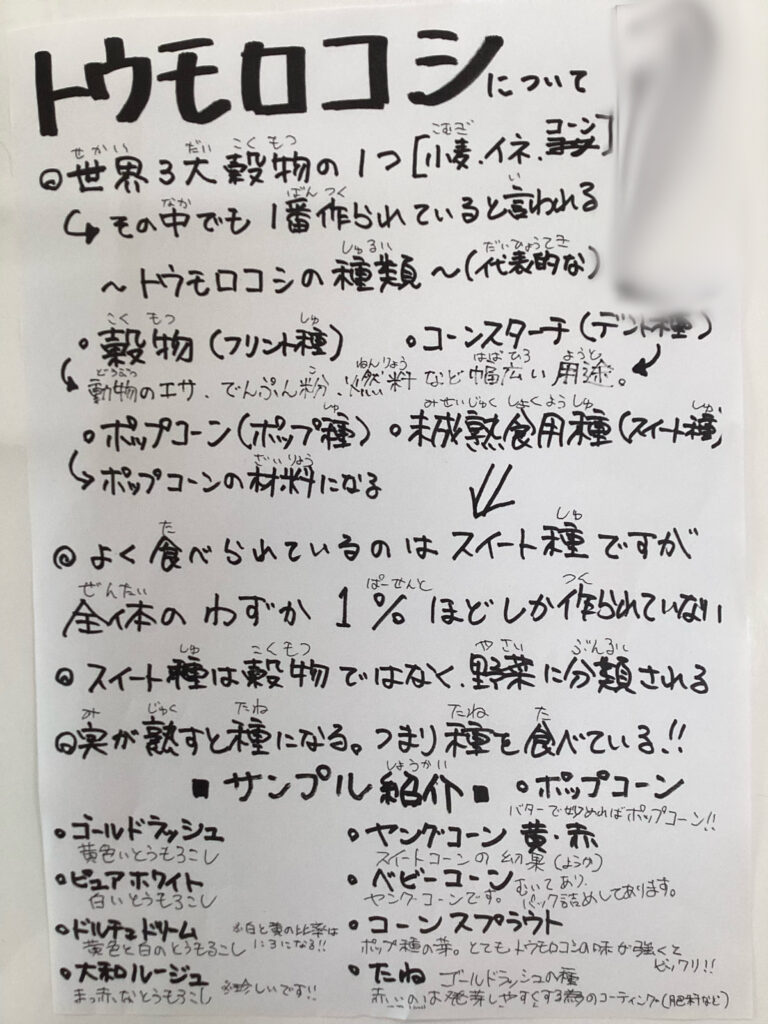 トウモロコシについて
◎世界3大穀物の1つ[小麦、イネ、コーン]
↳その中でも1番作られていると言われる
～トウモロコシの種類～(代表的な)
・穀物(フリント種) ・コーンスターチ(デント種)
↳動物のエサ、でんぷん粉、燃料など幅広い用途。
・ポップコーン(ポップ種) ・未成熟食用種(スイート種)
↳ポップコーンの材料になる
◎よく食べられているのはスイート種ですが
全体のわずか1%ほどしか作られていない
◎スイート種は穀物ではなく、野菜に分類される
◎実が熟すと種になる。つまり種を食べている!!
■サンプル紹介■
・ゴールドラッシュ
黄色いとうもろこし
・ピュアホワイト
白いとうもろこし
・ドルチェドリーム ※白と黄の比率は
黄色と白のとうもろこし 1:3になる!!
・大和ルージュ
まっ赤なとうもろこし ※珍しいです!!
・ポップコーン
バターで炒めればポップコーン!!
・ヤングコーン 黄・赤
スイートコーンの幼果(ようか)
・ベビーコーン むいてあり、
ヤングコーンです。パック詰めしてあります。
・コーンスプラウト
ポップ種の芽。とてもトウモロコシの味が強くて
ビックリ!!
・たね ゴールドラッシュの種
赤いのは発芽しやすくする為のコーティング(肥料など)